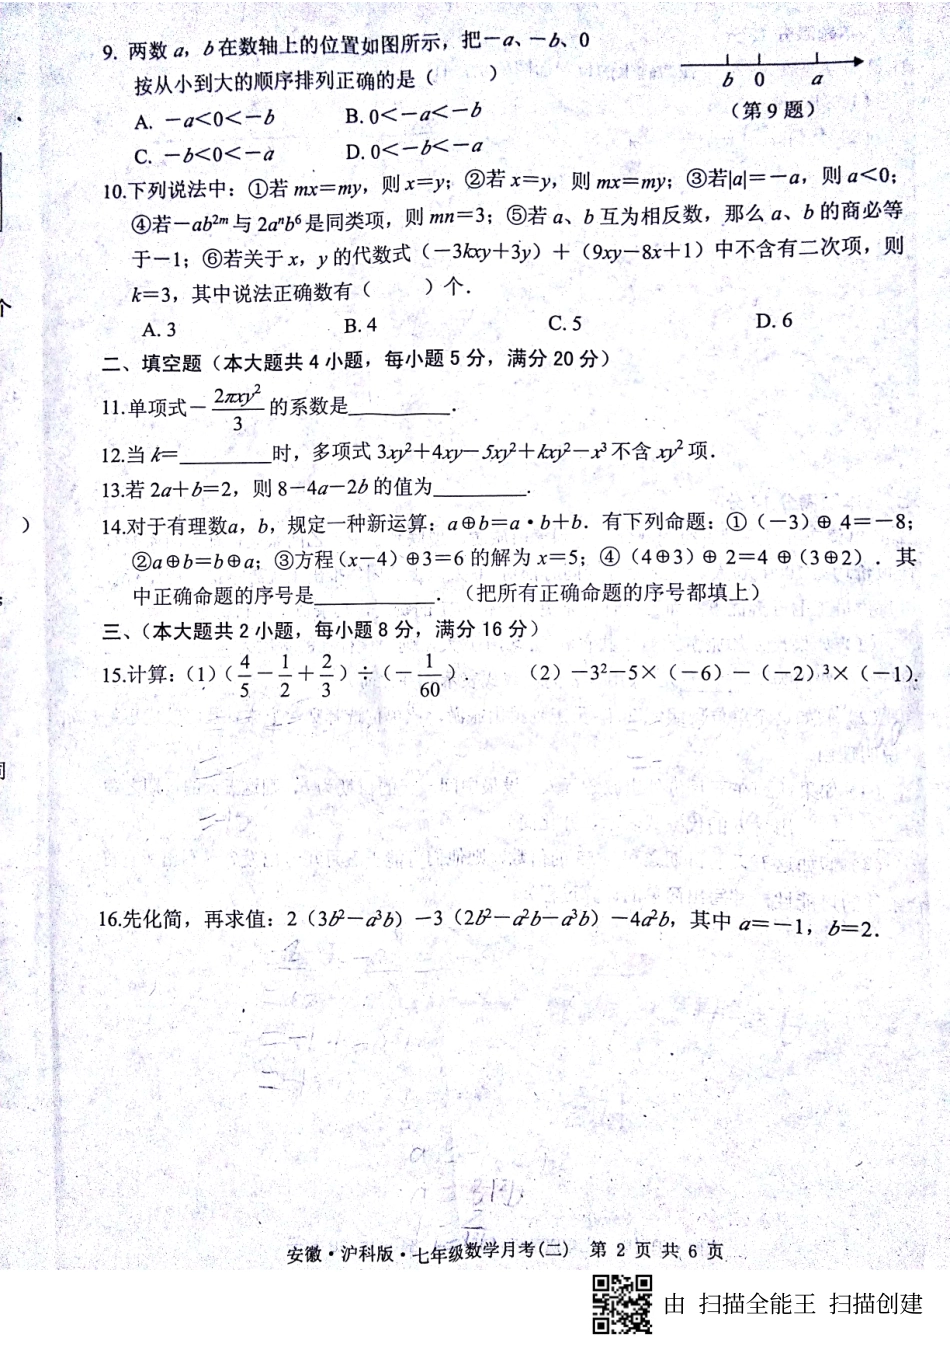 9. 两数 a，b 在数轴上的位置如图所示，把－a、－b、0
按从小到大的顺序排列正确的是（　　）
b 0 a
（第 9 题）
A. －a＜0＜－b　　B. 0＜－a＜－b
C. －b＜0＜－a　　D. 0＜－b＜－a
10.下列说法中：①若 mx＝my，则 x＝y；②若 x＝y，则 mx＝my；③若|a|＝－a，则 a＜0；
④若－ab²ᵐ 与 2aⁿb⁶ 是同类项，则 mn＝3；⑤若 a、b 互为相反数，那么 a、b 的商必等
于－1；⑥若关于 x，y 的代数式（－3kxy＋3y）＋（9xy－8x＋1）中不含有二次项，则
k＝3，其中说法正确数有（　　）个．
A. 3　　B. 4　　C. 5　　D. 6
二、填空题（本大题共 4 小题，每小题 5 分，满分 20 分）
11.单项式－2πxy²/3 的系数是________．
12.当 k＝________时，多项式 3xy²＋4xy－5xy²＋kxy²－x³ 不含 xy² 项．
13.若 2a＋b＝2，则 8－4a－2b 的值为________.
14.对于有理数a，b，规定一种新运算：a⊕b＝a・b＋b．有下列命题：①（－3）⊕ 4＝－8；
②a⊕b＝b⊕a；③方程（x－4）⊕3＝6 的解为 x＝5；④（4⊕3）⊕ 2＝4 ⊕（3⊕2）．其
中正确命题的序号是________．（把所有正确命题的序号都填上）
三、（本大题共 2 小题，每小题 8 分，满分 16 分）
15.计算：（1）（4/5－1/2＋2/3）÷（－1/60）．　　（2）－3²－5×（－6）－（－2）³×（－1）.
16.先化简，再求值：2（3b²－a³b）－3（2b²－a²b－a³b）－4a²b，其中 a＝－1，b＝2．
安徽・沪科版・七年级数学月考(二)　第 2 页 共 6 页
由 扫描全能王 扫描创建